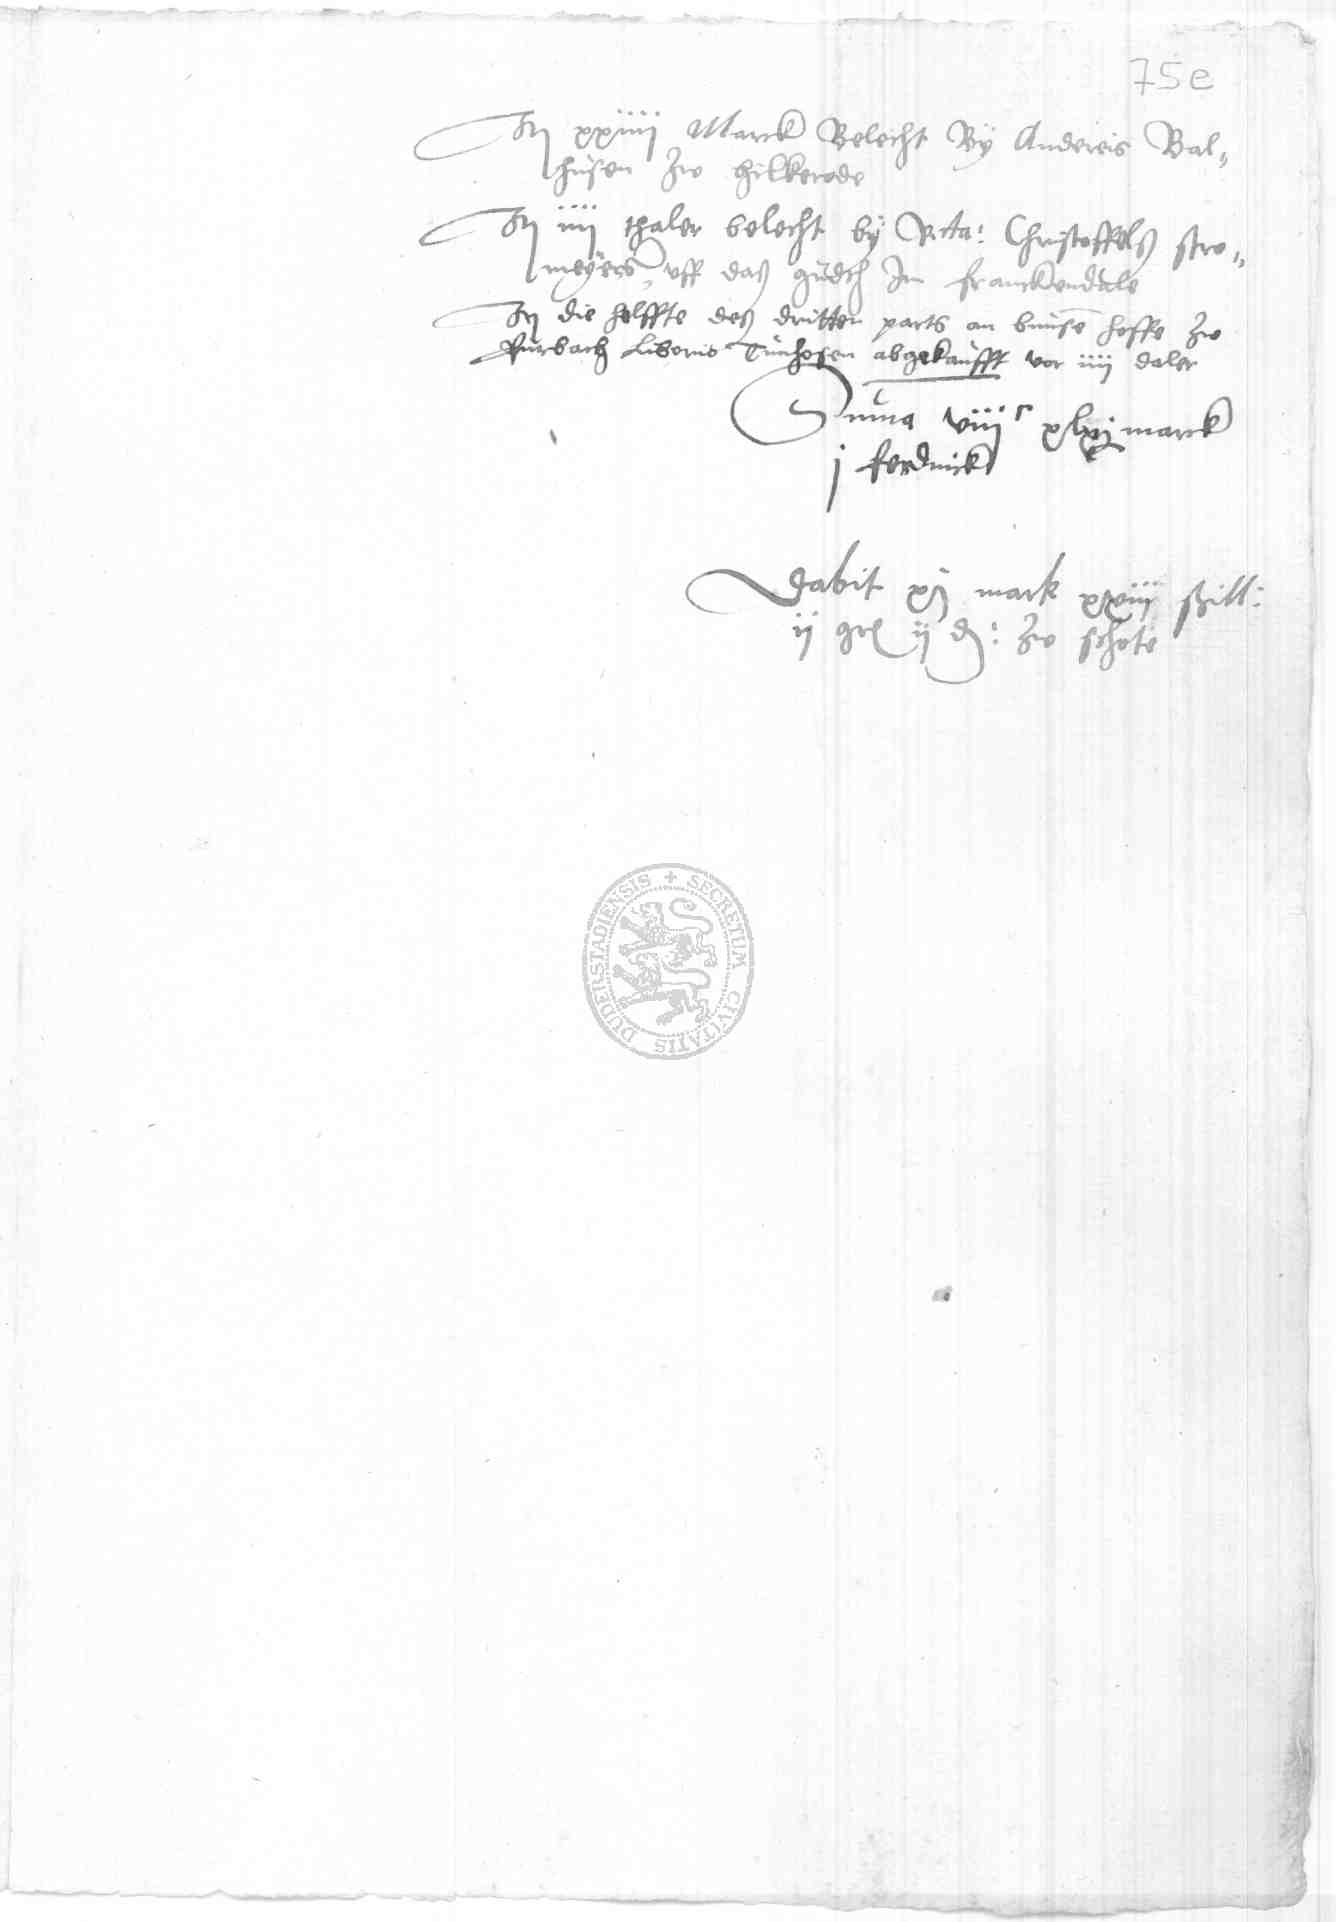 75e
It xxiiii Marck Belecht By Andereis Bal„
husen zw hilkerode
It iiii thaler belecht by Rela: Christoffels stro„
meyers uff das gudch Im franckendale
It die helffte des dritten parts an bunse hoffe zw
Furbach Liborio Tunhosen abgekaufft vor iiii daler
Suma viiiᶜ xlvj marck
j ferdinck
dabit xj mark xxiii szill:
ij grs ij d: zw schote
DUDERSTADIENSIS + SECRETUM CIVITATIS